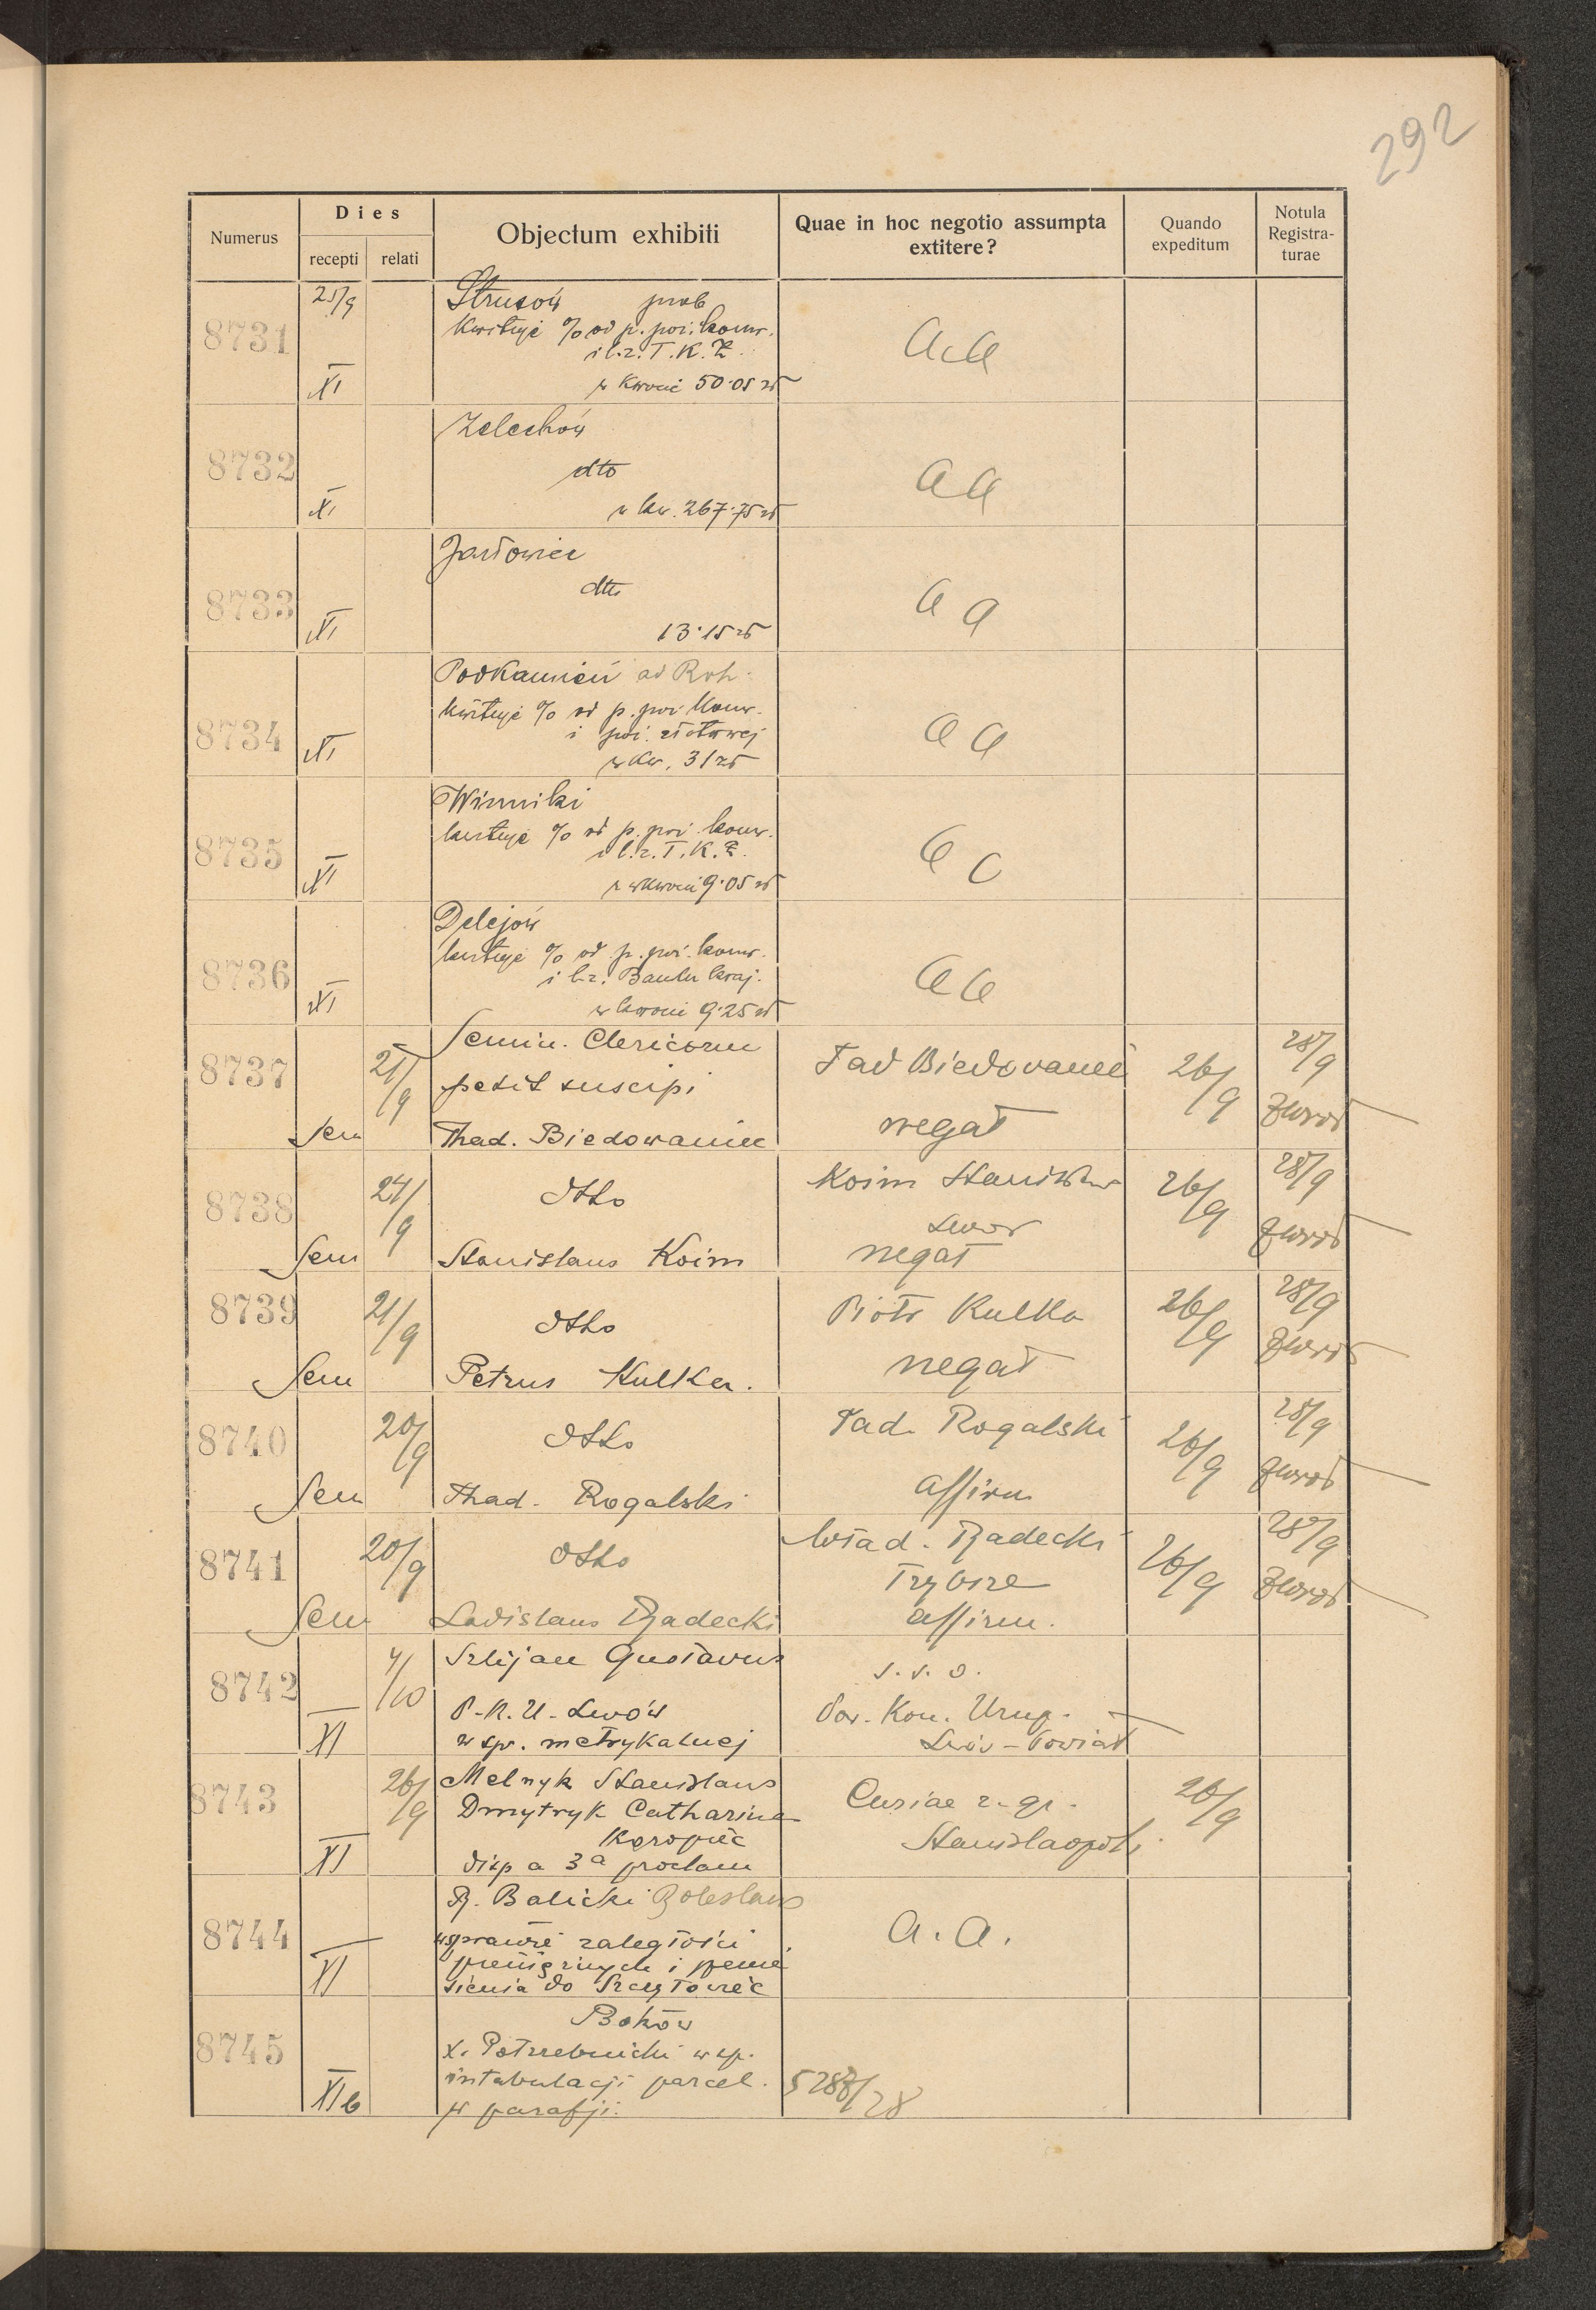 292
Numerus
Dies
recepti relati
Objectum exhibiti
Quae in hoc negotio assumpta
extitere?
Quando
expeditum
Notula
Registra-
turae
8731
25/9
XI
Strusów prob
Kwituje % od p. poż. konw.
i l. z. T. K. Z.
w kwocie 50·05 zł
aa
8732
XI
Zelechów
dto
w kw. 267·75 zł
aa
8733
XI
Jazłowiec
dto
13·15 zł
aa
8734
XI
Podkamień ad Roh.
kwituje % od p. poż. konw.
i poż. złotowej
w kw. 31 zł
aa
8735
XI
Winniki
kwituje % od p. poż. konw.
i l. z. T. K. Z.
w kwocie 9·05 zł
8736
XI
Delejów
kwituje % od p. poż. konw.
i l. z. Banku kraj.
w kwocie 9·25 zł
aa
8737
Sem
21/9
Semin. Clericorum
petit suscipi
Thad. Biedowaniec
Tad Biedovaniec
negat
26/9
28/9
zwrot
8738
Sem
24/9
dtto
Stanislaus Koim
Koim Stanisław
Lwow
negat
26/9
28/9
zwrot
8739
Sem
21/9
dtto
Petrus Kulka.
Piotr Kulka
negat
26/9
28/9
zwrot
8740
Sem
20/9
dtto
Thad. Rogalski
Tad. Rogalski
affirm
26/9
28/9
zwrot
8741
Sem
20/9
dtto
Ladislaus Radecki
Wład. Radecki
affirm.
26/9
28/9
zwrot
8742
XI
4/10
Szlijan Gustavus
P. K. U. Lwów
w spr. metrykalnej
s. s. o.
Pow. Kom. Uzup.
Lwów - Powiat
8743
XI
26/9
Melnyk Stanislaus
Dmytryk Catharina
Koropiec
disp a 3ª proclam
Curiae r. gr.
Stanislaopoli.
26/9
8744
XI
R. Balicki Boleslaus
w sprawie zaległości
pieniężnych i
sienia do
a. a.
8745
XIb
Boków
X. Potrzebnicki w sp.
intabulacji parcel.
w parafji.